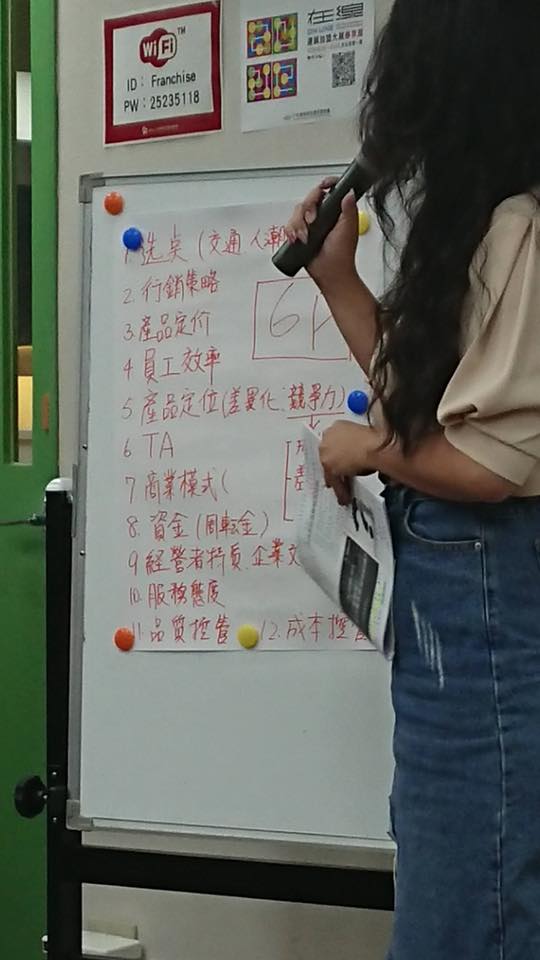 WiFi
ID： Franchise
PW：25235118
在線
連鎖加盟大融
1.选点 (交通 人潮
2. 行銷策略
3.產品定价
6P
4 員工效率
5 產品定位(差異化、競爭力)
6 TA
差
7 商業模式(
8. 資金 (周転金)
9 経營者特質、企業文
10. 服務態度
11. 品質控管 12. 成本控管